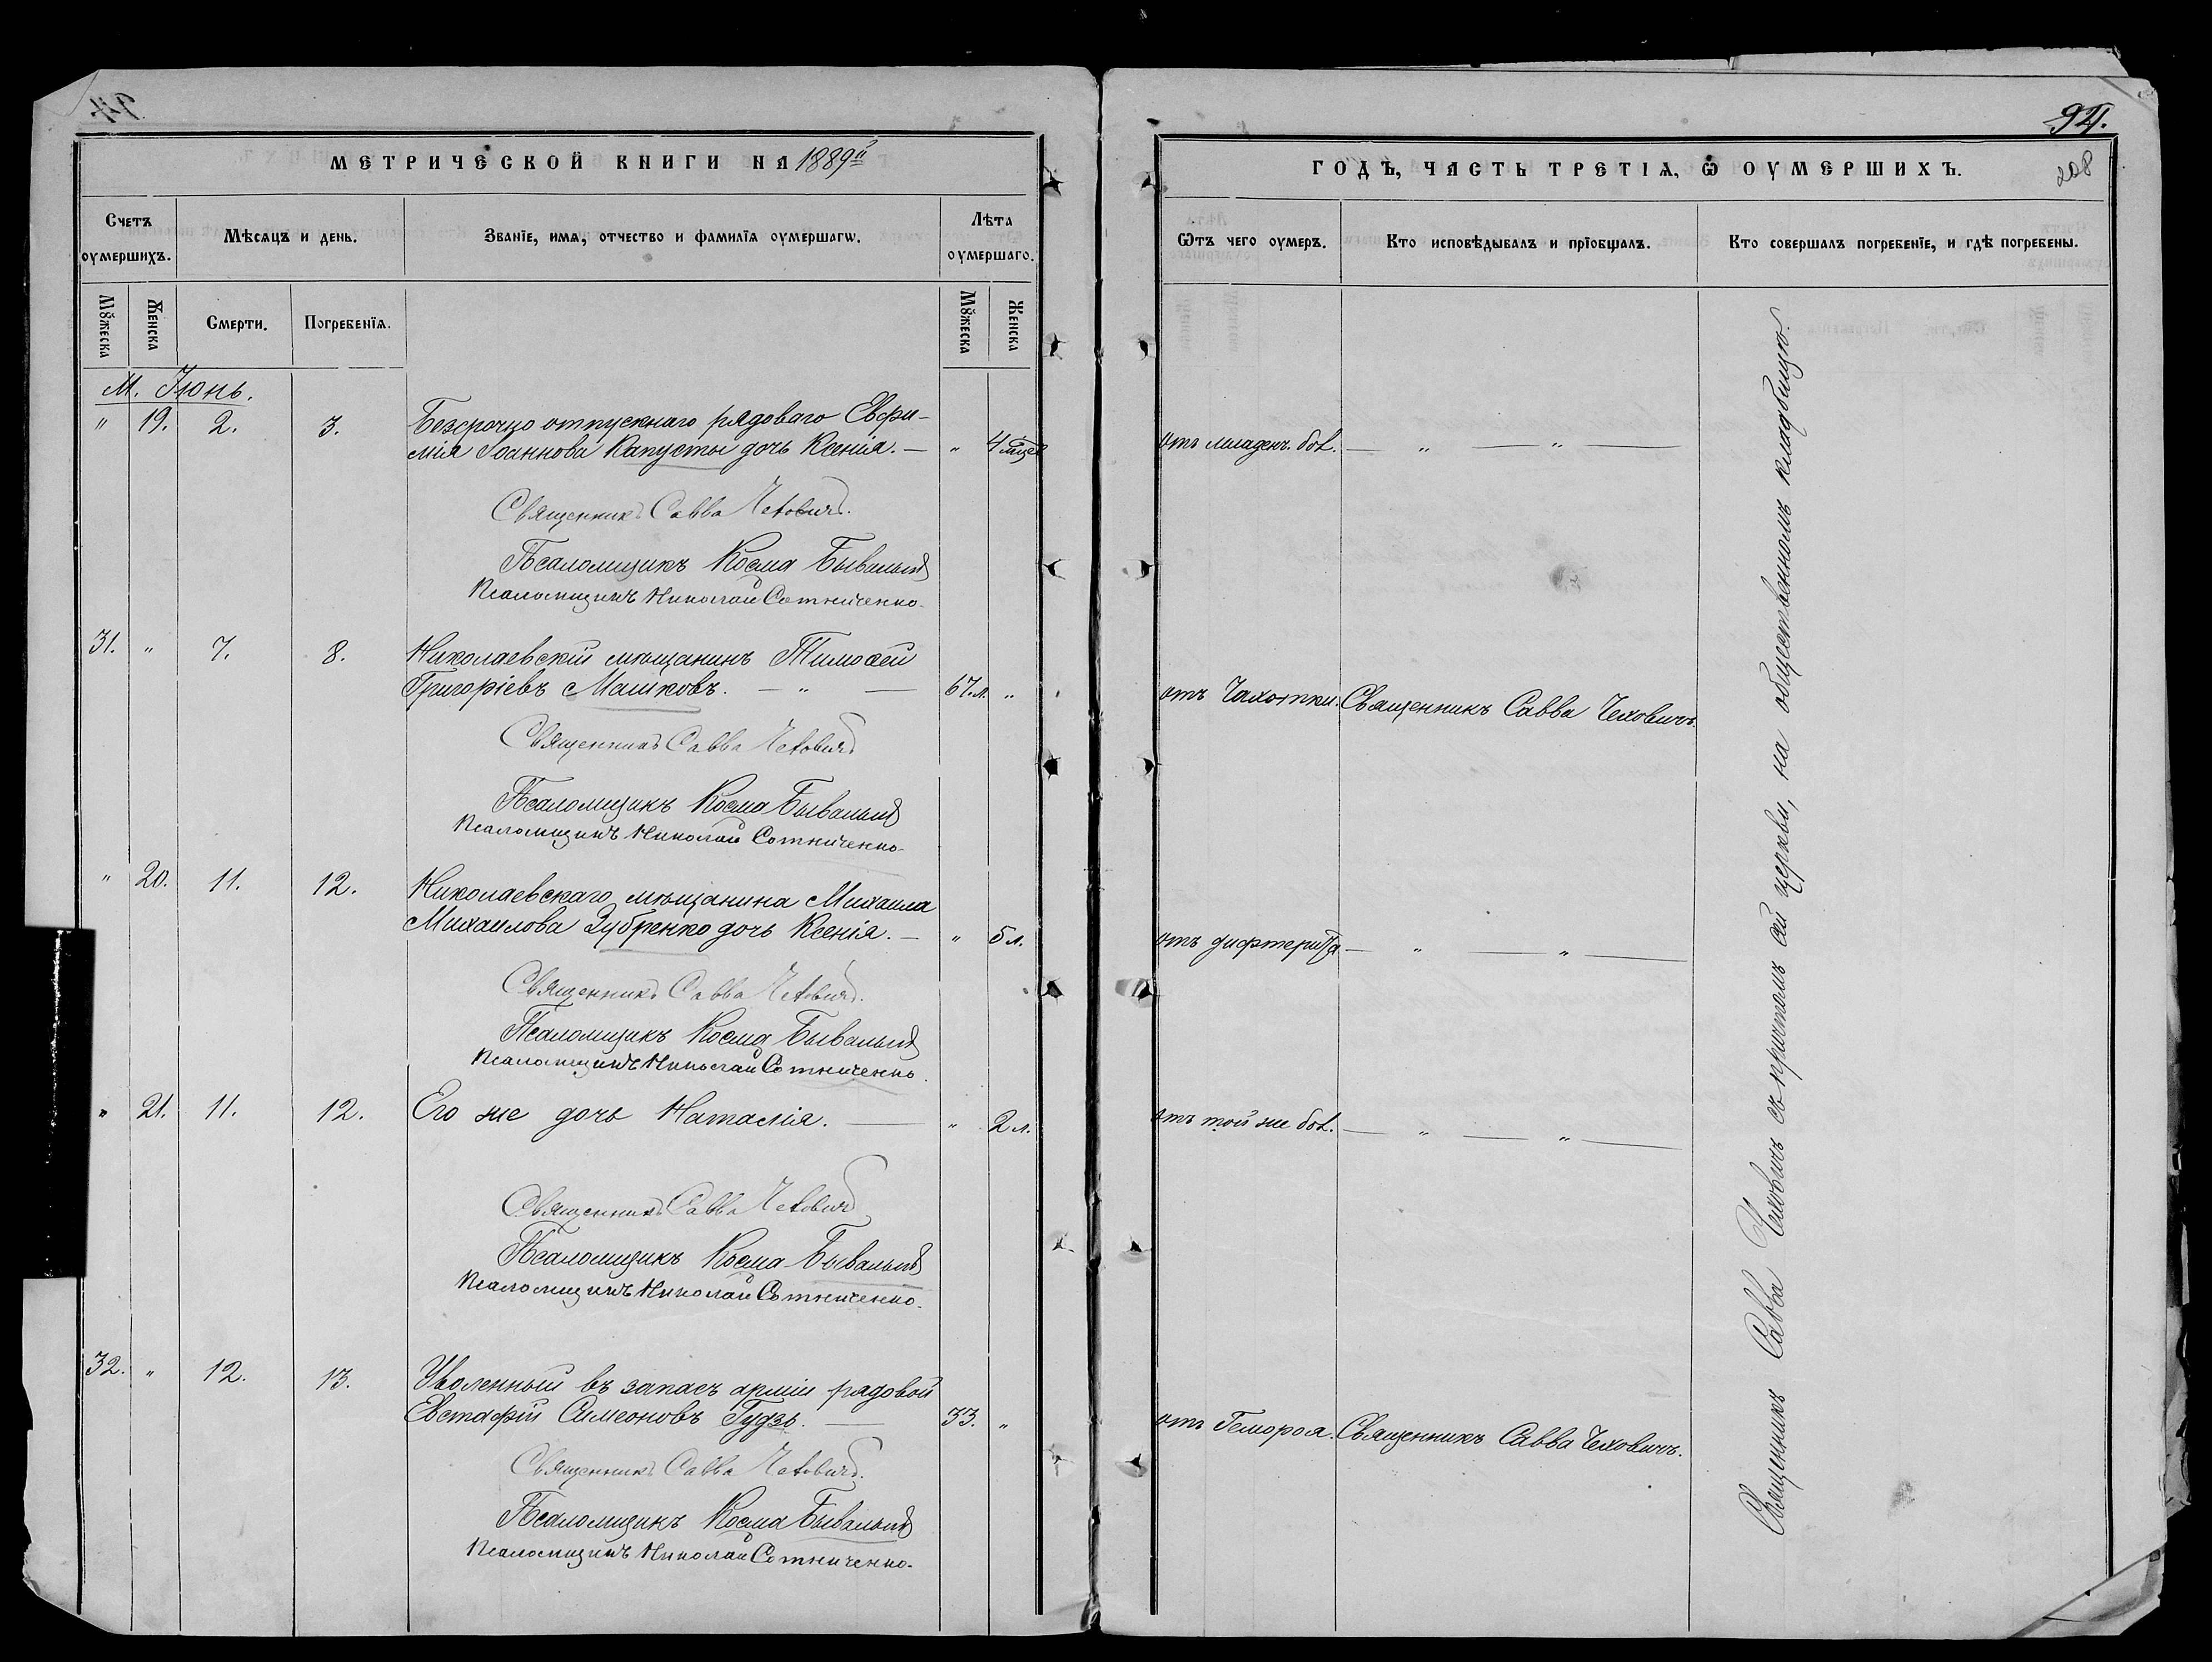 94.
МЕТРИЧЕСКОЙ КНИГИ НА 1889й
Счетъ оумершихъ.
Мѣсяцъ и день.
Званїе, имѧ, отчество и фамилїѧ оумершагѡ.
Лѣта оумершаго.
Мꙋжеска
Женска
Смерти.
Погребенїѧ.
Мꙋжеска
Женска
М. Іюнь.
" 19. 2. 3. Безсрочно отпускнаго рядоваго Евфи-
мія Іоаннова Капусты дочь Ксенія. — " 4 мѣс.
Священникъ Савва Чеховичъ.
Псаломщикъ Косма Бывалый
Псаломщикъ Николай Сотниченко.
31. " 7. 8. Николаевскій мѣщанинъ Тимоѳей
Григоріевъ Машковъ. — " — 67 л. "
Священникъ Савва Чеховичъ
Псаломщикъ Косма Бывалый
Псаломщикъ Николай Сотниченко.
" 20. 11. 12. Николаевскаго мѣщанина Михаила
Михаилова Зубренко дочь Ксенія. — " 5 л.
Священникъ Савва Чеховичъ.
Псаломщикъ Косма Бывалый
Псаломщикъ Николай Сотниченко.
" 21. 11. 12. Его же дочь Наталія. — " 2 л.
Священникъ Савва Чеховичъ
Псаломщикъ Косма Бывалый
Псаломщикъ Николай Сотниченко.
32. " 12. 13. Уволенный въ запасъ арміи рядовой
Евстафій Симеоновъ Гудзь. — 33. "
Священникъ Савва Чеховичъ.
Псаломщикъ Косма Бывалый
Псаломщикъ Николай Сотниченко.
94.
208
ГОДЪ, ЧАСТЬ ТРЕТІѦ, Ѡ ОУМЕРШИХЪ.
Ѿтъ чего оумеръ.
Кто исповѣдывалъ и прїобщалъ.
Кто совершалъ погребенїе, и гдѣ погребены.
отъ младен. бол. — " — " —
отъ Чахотки. Священникъ Савва Чеховичъ.
отъ дифтерита — " — " —
отъ той же бол. — " — " —
отъ Гемороя. Священникъ Савва Чеховичъ.
Священникъ Савва Чеховичъ съ причтомъ сей церкви, на общественномъ кладбищѣ.